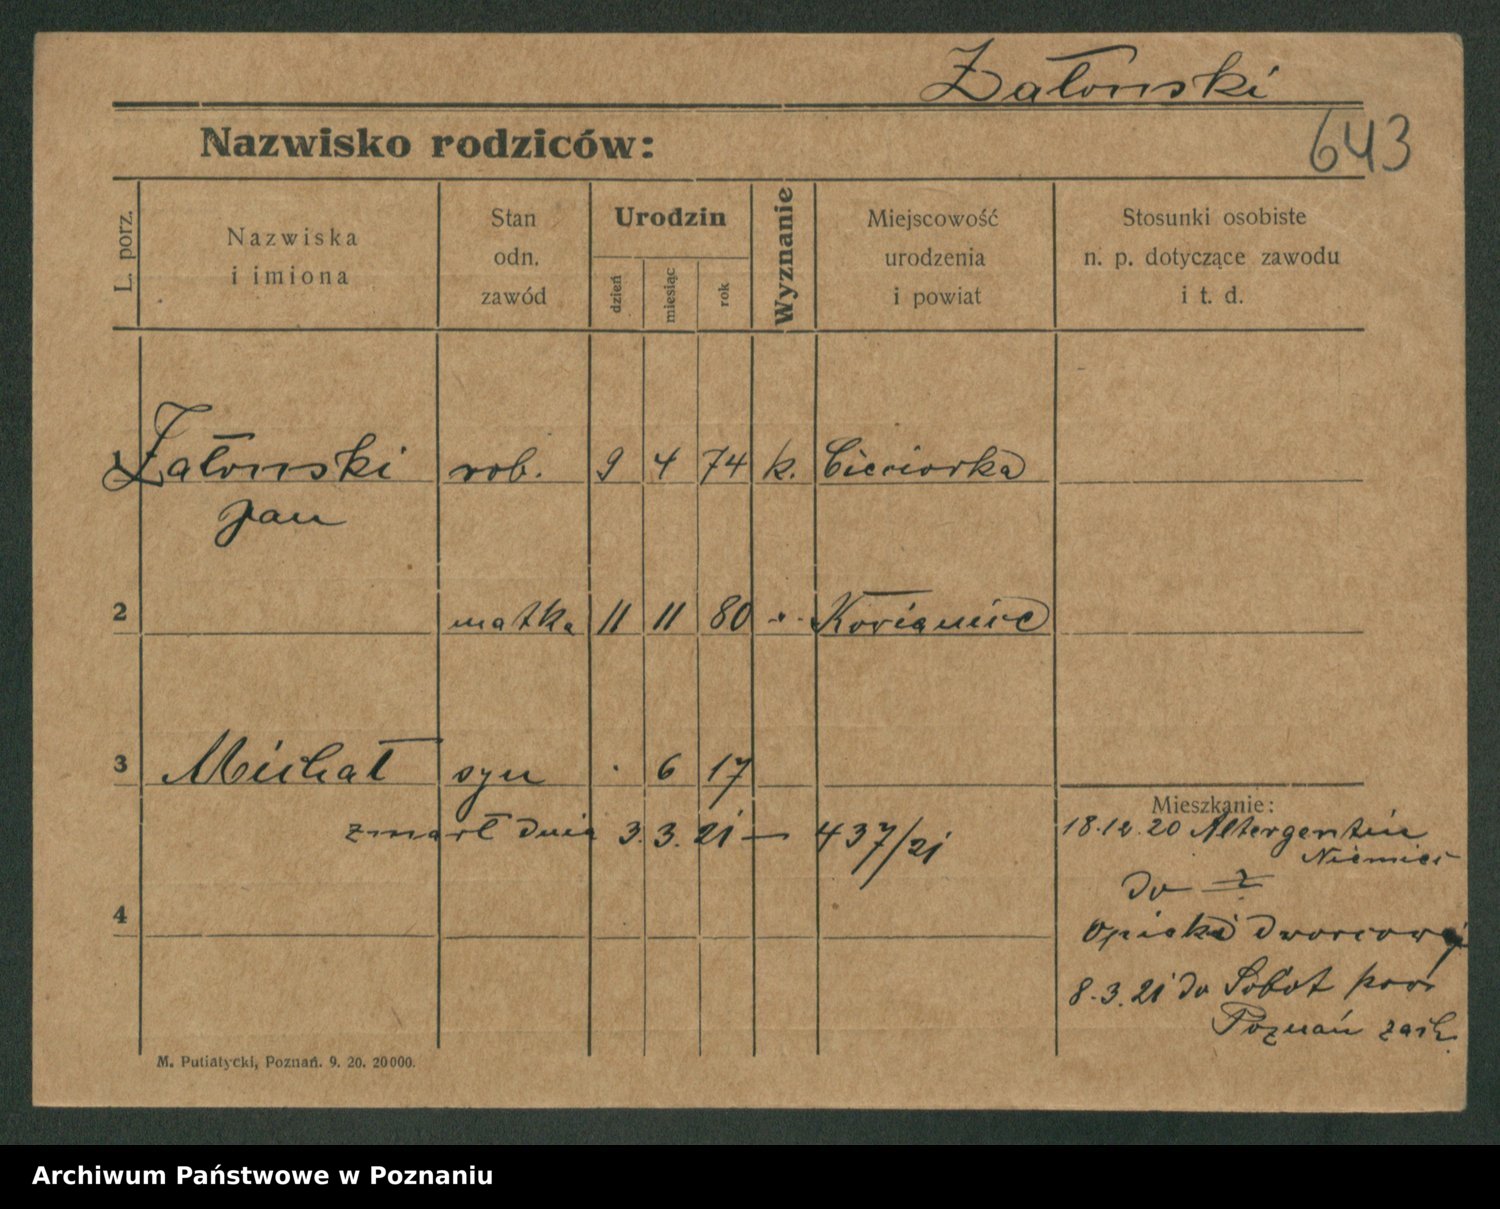 Załonski
643
Nazwisko rodziców:
L. porz.
Nazwiska
i imiona
Stan
odn.
zawód
Urodzin
dzień
miesiąc
rok
Wyznanie
Miejscowość
urodzenia
i powiat
Stosunki osobiste
n. p. dotyczące zawodu
i t. d.
Załonski rob. 9 4 74 k. Cieciorka
Jan
2 matka 11 11 80
3 Michał syn 6 17
Mieszkanie:
zmarł dnia 3. 3. 21 — 437/21
18.12.20 Altergentin
Niemiec
do
4
Opieki dworcowej
8.3.21 do Sobot pow
Poznań zach.
M. Putiatycki, Poznań. 9. 20. 20000.
Archiwum Państwowe w Poznaniu